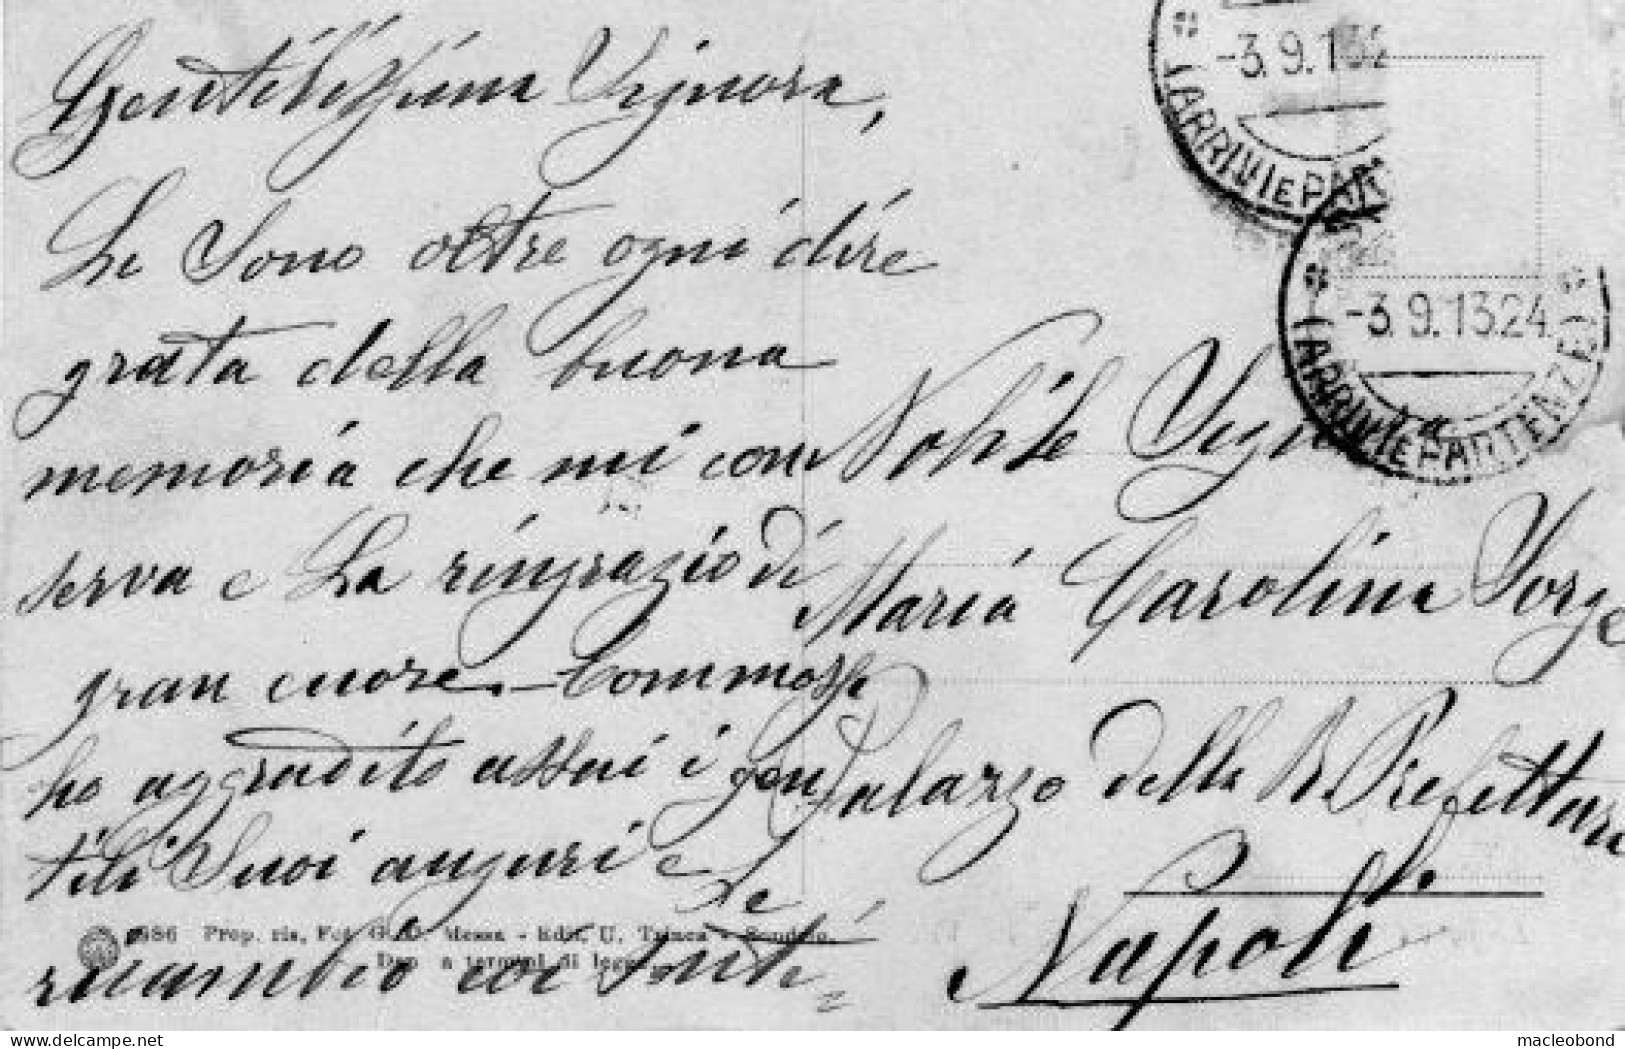 Gentilissima Signora,
Le sono oltre ogni dire
grata della buona
memoria che mi con
serva e La ringrazio di
gran cuore. – Commossa
ho aggradito assai i gen
tili Suoi auguri e
Le
ricambio coi senti=
486 Prop. ris. Fot. G. Messa - Edit. U. Trinca - Sondrio.
Dep. a termini di legge
-3.9.13 2
(ARRIVI E PAR
-3.9.13.24.
(ARRIVI E PARTENZE)
Nobile Signora
Maria Carolina Sorge
Palazzo della R. Prefettura
Napoli
delcampe.net
macleobond